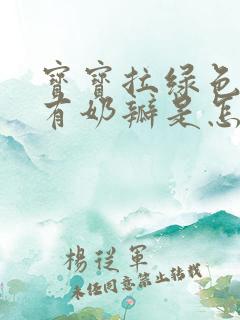 寶寶拉綠色
有奶瓣是怎
楊從軍
未經同意禁止轉載